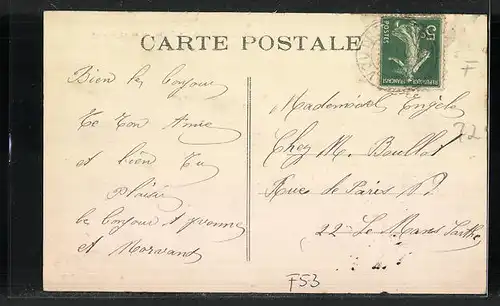 CARTE POSTALE
5c
POSTES
REPUBLIQUE FRANÇAISE
F
22
Bien le bonjour
Te Ton Amie
et bien Tu
plaisir
le bonjour a yvonne
et Morvand
Mademoisel Engele
Chez M. Boullot
Rue de Paris
22 Le Mans Sarthe
F53